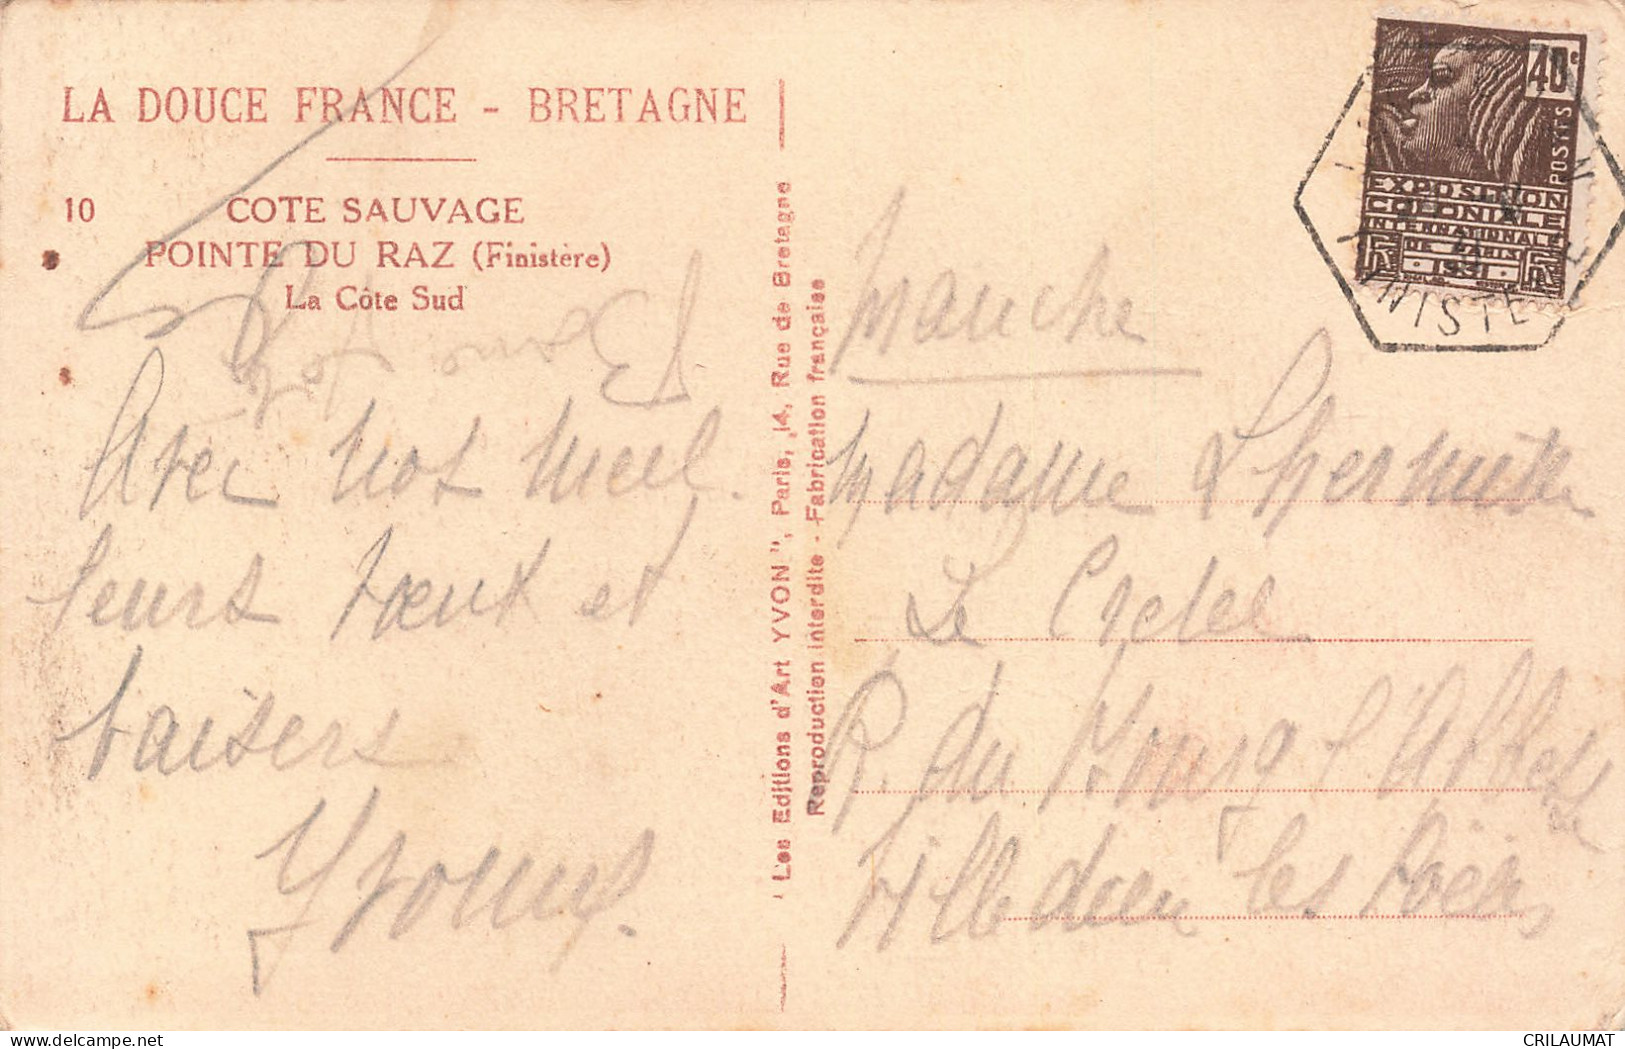 LA DOUCE FRANCE - BRETAGNE
10 COTE SAUVAGE
POINTE DU RAZ (Finistère)
La Côte Sud
Avec nos meil
leurs vœux et
baisers
Yvonne
"Les Editions d'Art YVON", Paris, 14, Rue de Bretagne
Reproduction interdite - Fabrication française
40c
POSTES
EXPOSITION
COLONIALE
INTERNATIONALE
DE PARIS
1931
Manche
Madame Lhermitte
Le
R. du l'Abbesse
Villedieu les Poëles
CRILAUMAT